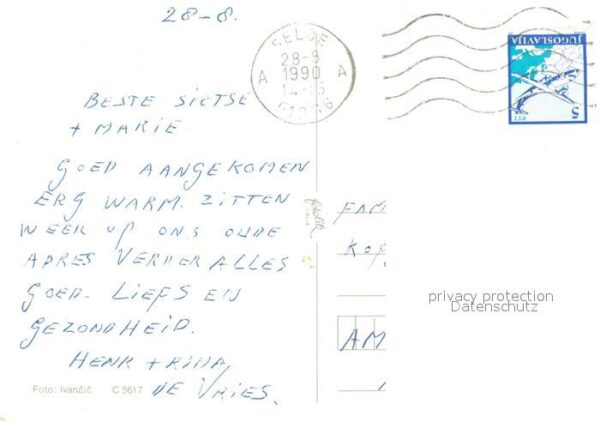 28-8.
SELCE
28-8
1990
A A
JUGOSLAVIJA
PTT
5
BESTE SIETSE
+ MARIE
GOED AANGEKOMEN
ERG WARM. ZITTEN
WEER OP ONS OUDE
ADRES VERDER ALLES
GOED. LIEFS EN
GEZONDHEID.
HENK + RINA
DE VRIES.
FAM
KOP
AM
privacy protection
Datenschutz
Foto: Ivančić C 5617